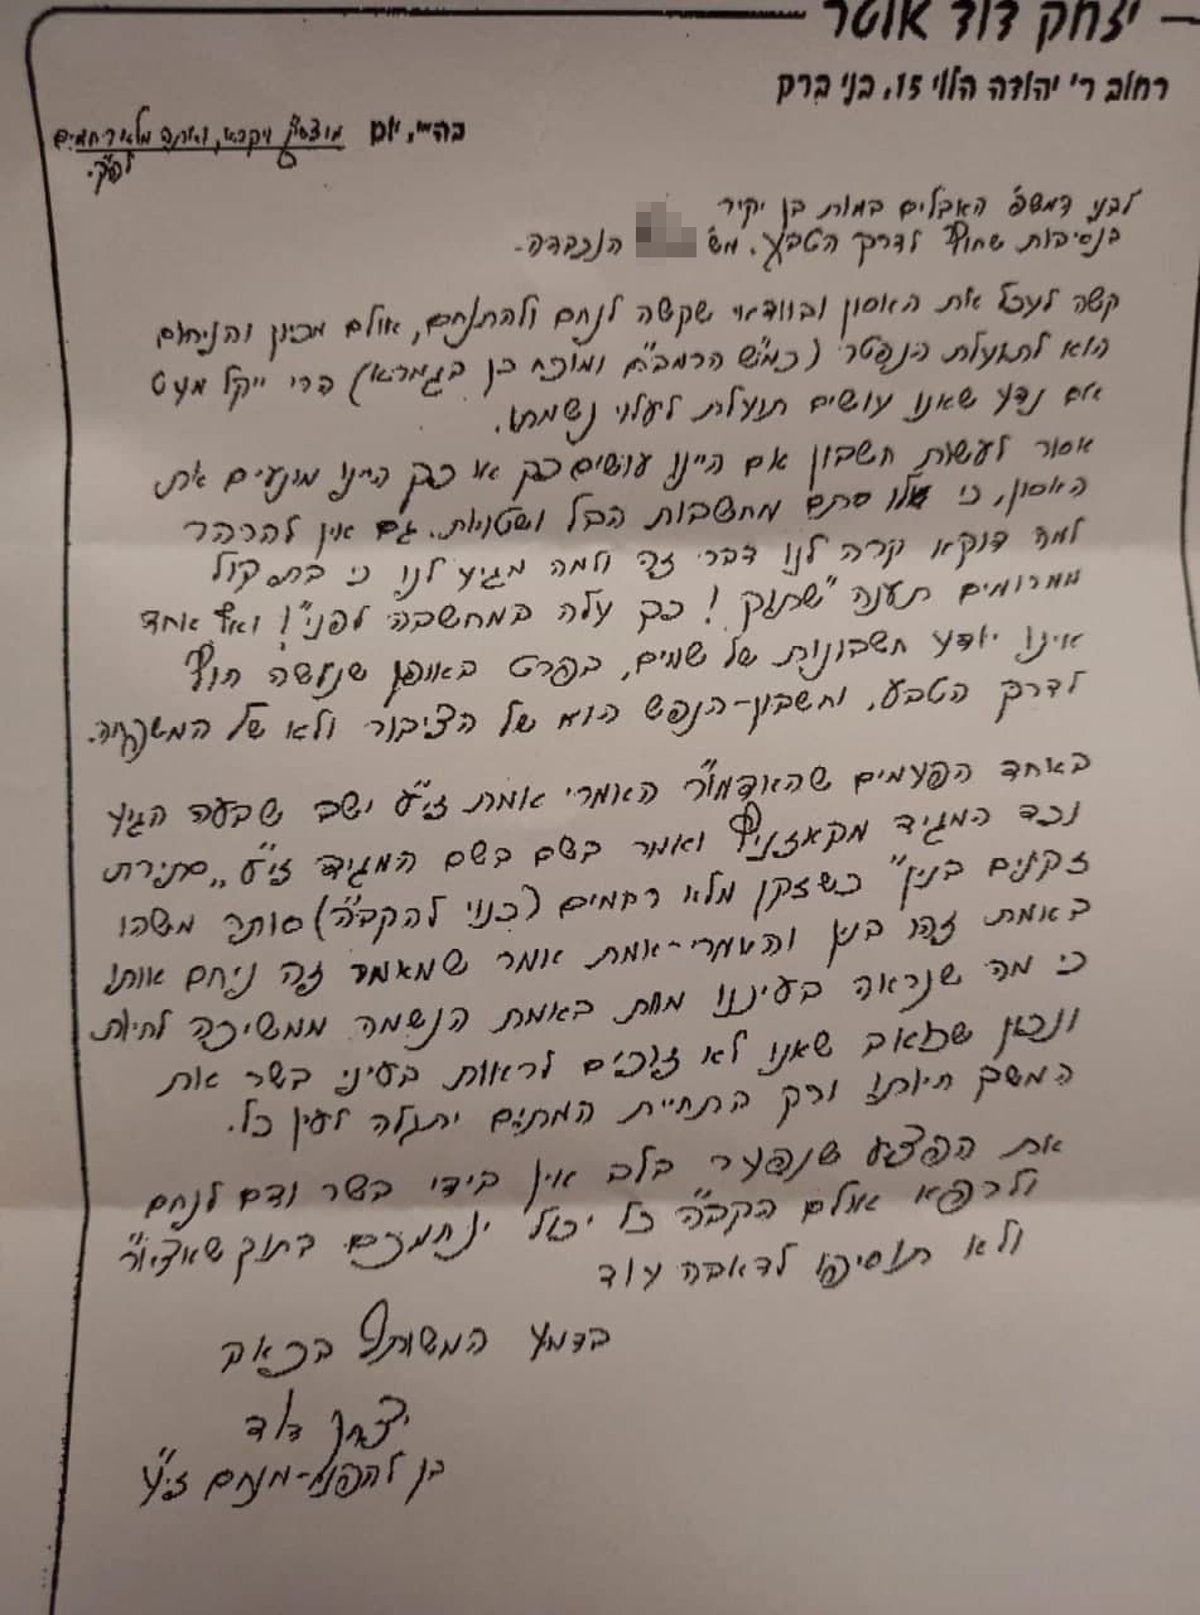 יצחק דוד אלטר
רחוב ר' יהודה הלוי 15, בני ברק
בה"י, יום מוצש"ק ויקרא, ואתה מלא רחמים
לפ"ק.
לבני המשפ' האבלים במות בן יקיר
בנסיבות שחוץ לדרך הטבע, מש' הנכבדה-
קשה לעכל את האסון ובוודאי שקשה לנחם ולהתנחם, אולם מכיון והניחום
הוא לתועלת הנפטר (כמ"ש הרמב"ם ומוכח כן בגמרא) הרי ייקל מעט
אם נדע שאנו עושים תועלת לעילוי נשמתו.
אסור לעשות חשבון אם היינו עושים כך או כך היינו מונעים את
האסון, כי אלו סתם מחשבות הבל ושטויות. גם אין להרהר
למה דוקא קרה לנו דבר זה ולמה מגיע לנו כי בת קול
ממרומים תענה "שתוק! כך עלה במחשבה לפני"! ואף אחד
אינו יודע חשבונות של שמים, בפרט באופן שנעשה חוץ
לדרך הטבע. וחשבון-הנפש הוא של הציבור ולא של המשפחה.
באחד הפעמים שהאדמו"ר האמרי אמת זי"ע ישב שבעה הגיע
נכד המגיד מקאזניץ ואמר בשם בשם המגיד זי"ע "סתירת
זקנים בנין" כשזקן מלא רחמים (כנוי להקב"ה) סותר משהו
באמת זהו בנין והאמרי-אמת אמר שמאמר זה ניחם אותו
כי מה שנראה בעיננו מוות באמת הנשמה ממשיכה לחיות
ונכון שכואב שאנו לא זוכים לראות בעיני בשר את
המשך חיותו ורק בתחיית המתים יתגלה לעין כל.
את הפצע שנפער בלב אין בידי בשר ודם לנחם
ולרפא אולם הקב"ה כל יכול ינחמכם בתוך שאצי"ור
ולא תוסיפו לדאבה עוד
בדמע המשותף בכאב
יצחק דוד
בן להפני-מנחם זי"ע